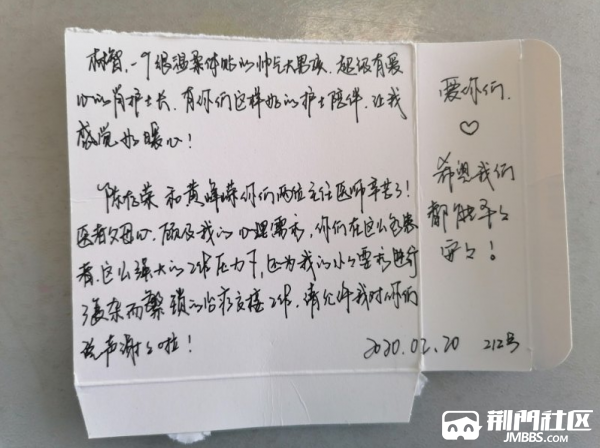 树智,一个很温柔体贴的帅气大男孩,超级有爱
心的肖护士长,有你们这样好的护士陪伴,让我
感觉好暖心!
陈存荣和黄峰嵘你们两位主任医师辛苦了!
医者父母心,顾及我的心理需求,你们在这么多患
者,这么强大的工作压力下,还为我的小小要求进行
了复杂而繁琐的治疗交接工作,请允许我对你们
说声谢谢啦!
2020.02.20 212号
爱你们.
♡
希望我们
都能平平
安安!
荆門社区
JMBBS.COM